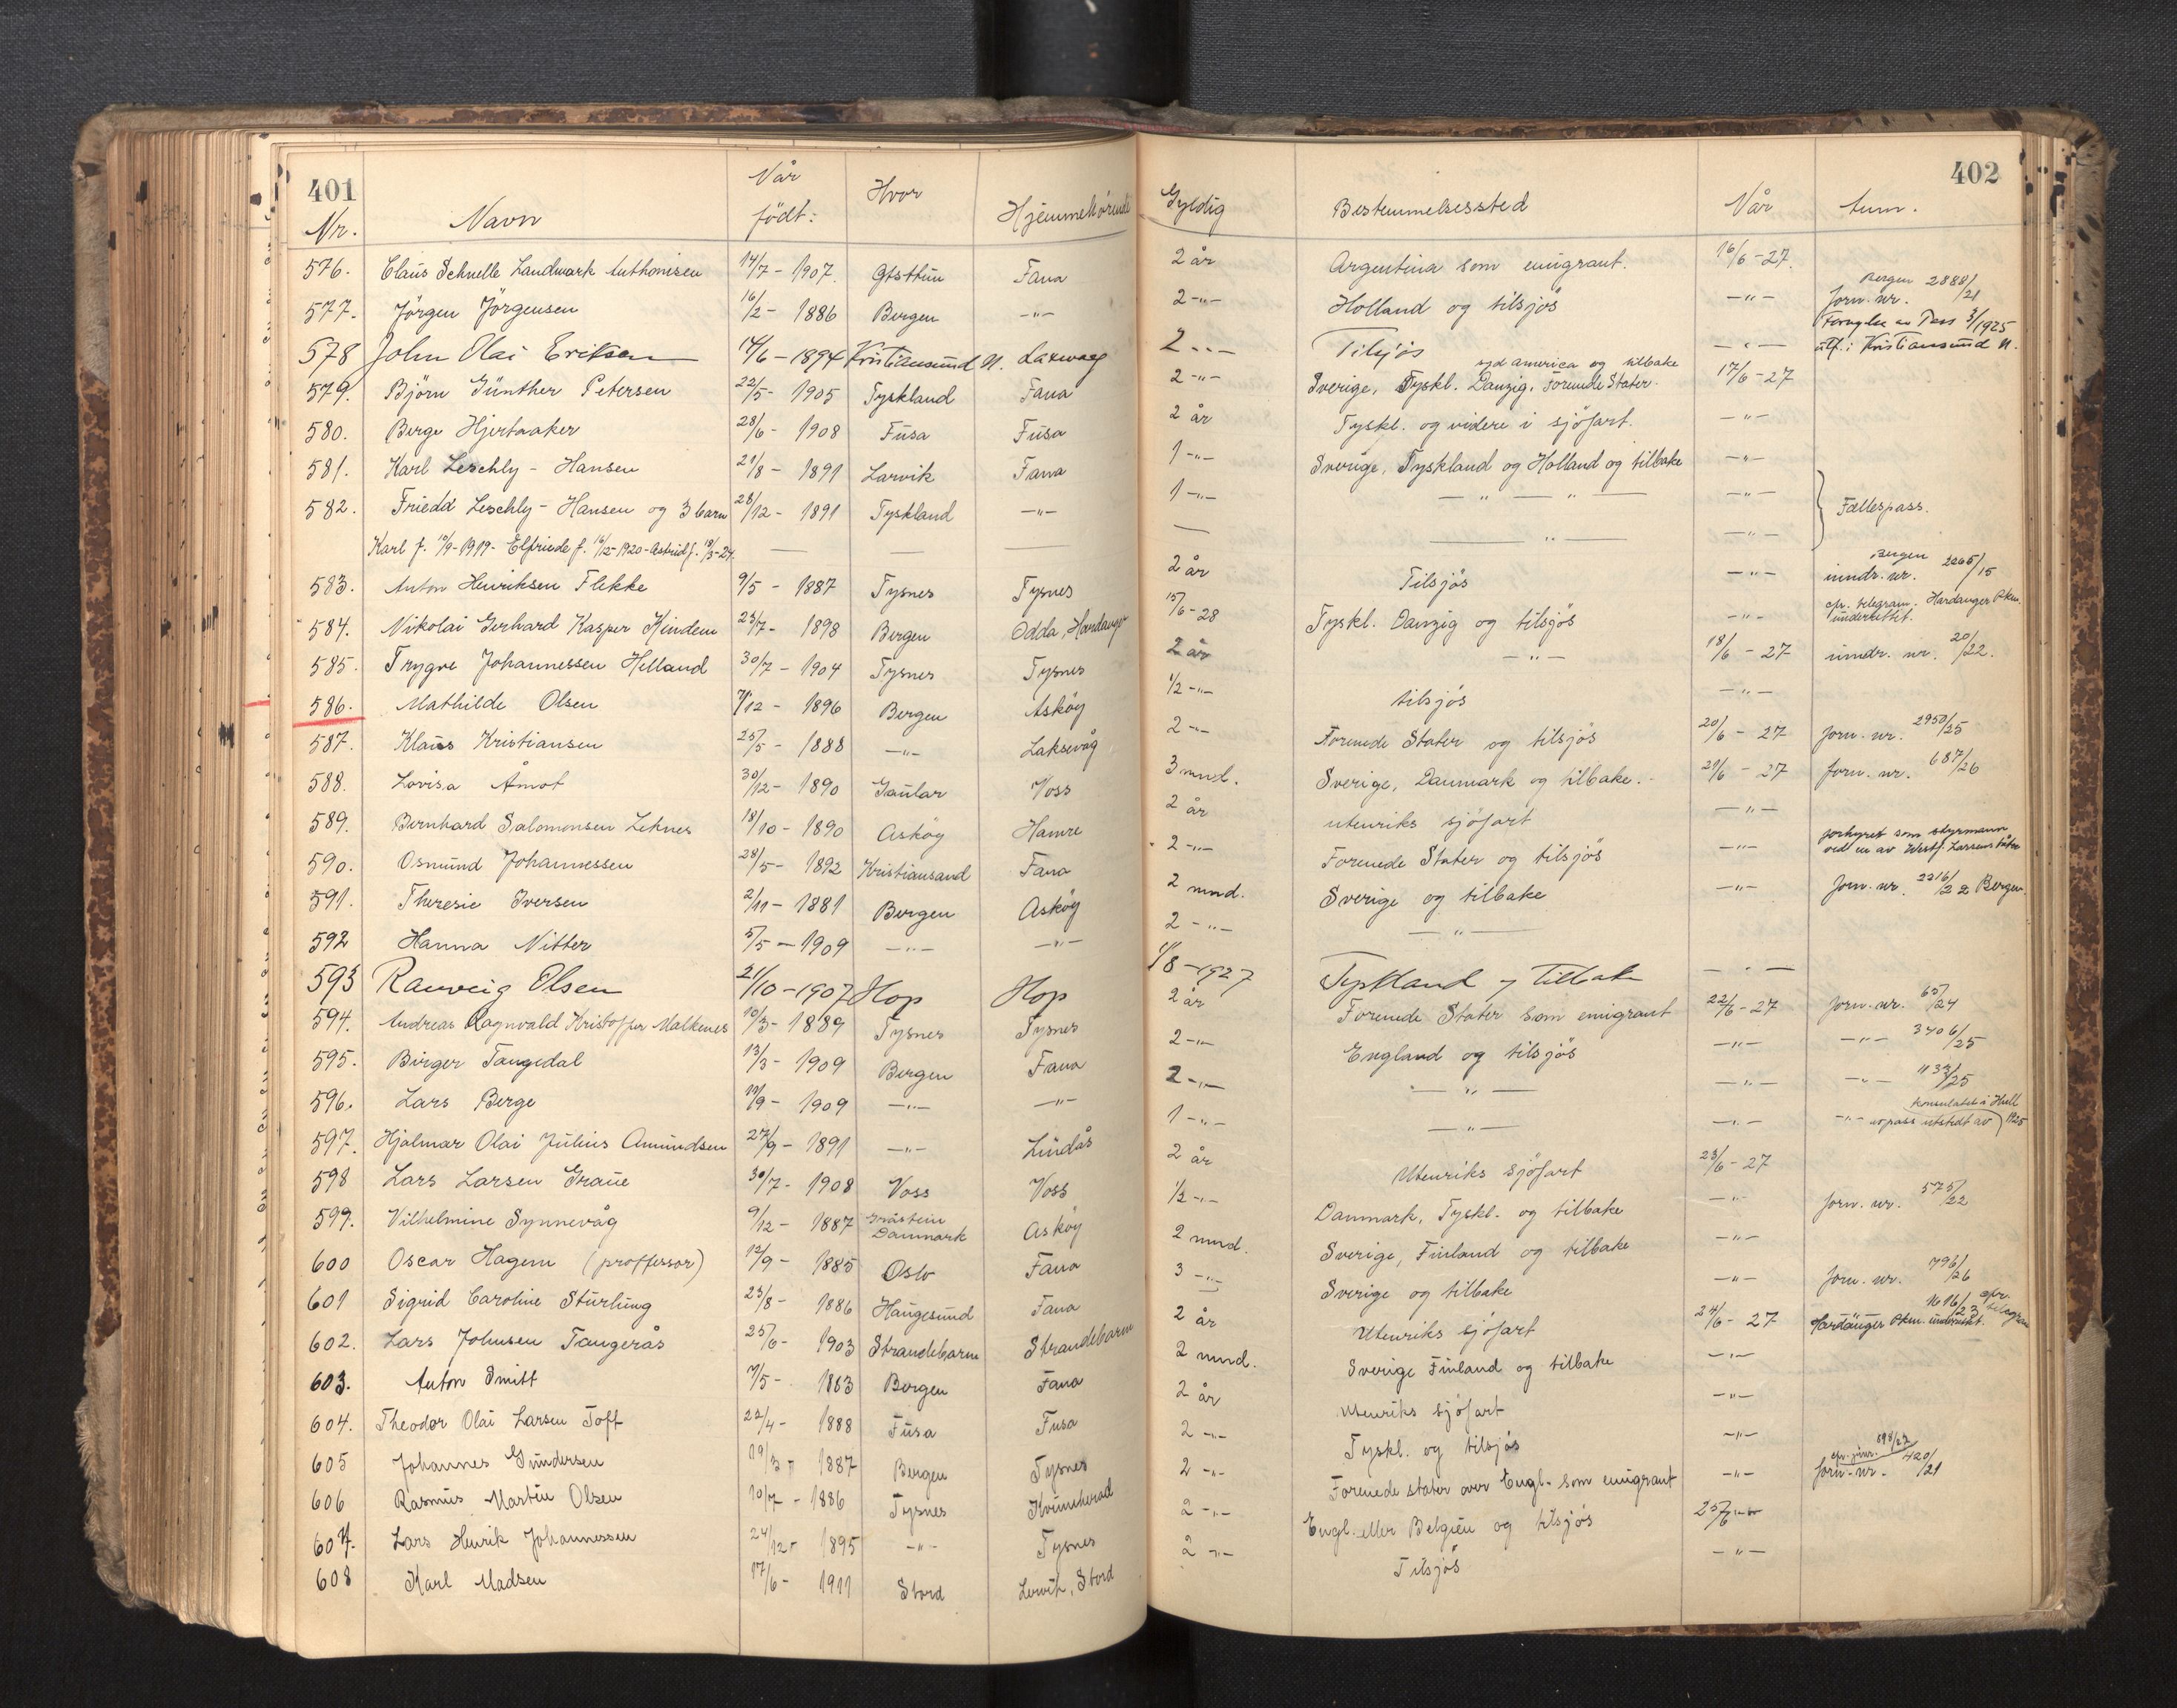 401
402
Nr. Navn Når født: Hvor Hjemmehörende Gyldig Bestemmelsessted Når Anm.
576. Claus Schnelle Landmark Anthonisen 14/7 - 1907. Fana 2 år Argentina som emigrant. 16/6 - 27.
577. Jörgen Jörgensen 16/2 - 1886 Bergen -"- 2 -"- Holland og tilsjös -"- Bergen Jorn. nr. 2888/21
578 John Olai Eriksen 14/6 - 1894 Kristiansund N. Laxevaag 2 -"- Tilsjös -"- Fornyelse av Pass 3/1925 utf. i Kristiansund N.
579. Björn Günther Petersen 22/5 - 1905 Tyskland Fana 2 -"- Sverige, Tyskl. Danzig, Forenede Stater. syd america og tilbake 17/6 - 27
580. Berge Hjertaaker 28/6 - 1908 Fusa Fusa 2 år Tyskl. og videre i sjöfart. -"-
581. Karl Leschly - Hansen 21/8 - 1891 Larvik Fana 1 -"- Sverige, Tyskland og Holland og tilbake -"-
582. Friedd Leschly - Hansen og 3 barn 28/12 - 1891 Tyskland -"- 1 -"- -"- -"- -"- Fællespass.
Karl f. 10/9 - 1919 - Elfriede f. 16/2 - 1920 - Astrid f. 18/3 - 24. — — — — -"- -"-
583. Anton Henriksen Flekke 9/5 - 1887 Tysnes Tysnes 2 år Tilsjös -"- Bergen inndr. nr. 2265/15
584. Nikolai Gerhard Kasper Kindem 23/7 - 1898 Bergen Odda, Hardanger 15/6 - 28 Tyskl. Danzig og tilsjös -"- cfr. telegram. Hardanger Pkm. underrettet.
585. Trygve Johannessen Helland 30/7 - 1904 Tysnes Tysnes 2 år -"- 18/6 - 27 inndr. nr. 20/22.
586. Mathilde Olsen 7/12 - 1896 Bergen Asköy 1/2 -"- tilsjös -"-
587. Klaus Kristiansen 25/5 - 1888 -"- Laksevåg 2 -"- Forenede Stater og tilsjös 20/6 - 27 Jorn. nr. 2950/25
588. Lovisa Åmot 30/12 - 1890 Gaular Voss 3 mnd. Sverige, Danmark og tilbake. 21/6 - 27 Jorn. nr. 687/26
589. Bernhard Salomonsen Leknes 18/10 - 1890 Asköy Hamre 2 år utenriks sjöfart -"-
590. Osmund Johannessen 28/5 - 1892 Kristiansand Fana 2 -"- Forenede Stater og tilsjös -"- forhyret som styrmann ved en av Westf. Larsens båter
591. Theresie Iversen 2/11 - 1881 Bergen Asköy 2 mnd. Sverige og tilbake -"- Jorn. nr. 2216/22 Bergen.
592 Hanna Nitter 5/5 - 1909 -"- -"- 2 -"- -"-
593 Ranveig Olsen 21/10 - 1907 Hop Hop 1/8 - 1927 Tyskland og Tilbake -"-
594. Andreas Ragnvald Kristoffer Malkenes 10/3 - 1889 Tysnes Tysnes 2 år Forenede Stater som emigrant 22/6 - 27 Jorn. nr. 65/24
595. Birger Tangedal 13/3 - 1909 Bergen Fana 2 -"- England og tilsjös -"- -"- 3406/25
596. Lars Berge 19/9 - 1909 -"- -"- 2 -"- -"- -"- -"- 1133/25
597. Hjalmar Olai Julius Amundsen 27/9 - 1891 -"- Lindås 1 -"- -"- -"- -"- av pass utstedt av konsulatet i Hull 1925
598 Lars Larsen Graue 30/7 - 1908 Voss Voss 2 år Utenriks sjöfart 23/6 - 27
599. Vilhelmine Synnevåg 9/12 - 1887 Gråstein Danmark Asköy 1/2 -"- Danmark, Tyskl. og tilbake -"- Jorn. nr. 575/22
600 Oscar Hagem (proffessor) 12/9 - 1885 Oslo Fana 2 mnd. Sverige, Finland og tilbake -"-
601 Sigrid Caroline Sturlung 23/8 - 1886 Haugesund Fana 3 -"- Sverige og tilbake -"- Jorn. nr. 796/26
602. Lars Johnsen Tangerås 25/6 - 1903 Strandebarm Strandebarm 2 år Utenriks sjöfart 24/6 - 27 1616/23 cfr. telegram Hardanger Pkm. underrett.
603. Anton Smitt 7/5 - 1883 Bergen Fana 2 mnd. Sverige Finland og tilbake -"-
604. Theodor Olai Larsen Toft 22/4 - 1888 Fusa Fusa 2 år Utenriks sjöfart -"-
605 Johannes Gundersen 19/3 - 1887 Bergen Tysnes 2 -"- Tyskl. og tilsjös -"-
606 Rasmus Martin Olsen 10/7 - 1886 Tysnes Kvinnherad 2 -"- Forenede stater over Engl. som emigrant -"- cfr. jour. 898/27 Jorn. nr. 420/21
607. Lars Henrik Johannessen 24/12 - 1895 -"- Tysnes 2 -"- Engl. eller Belgien og tilsjös 25/6
608 Karl Madsen 17/6 - 1911 Stord Lervik, Stord 2 -"- Tilsjös -"-